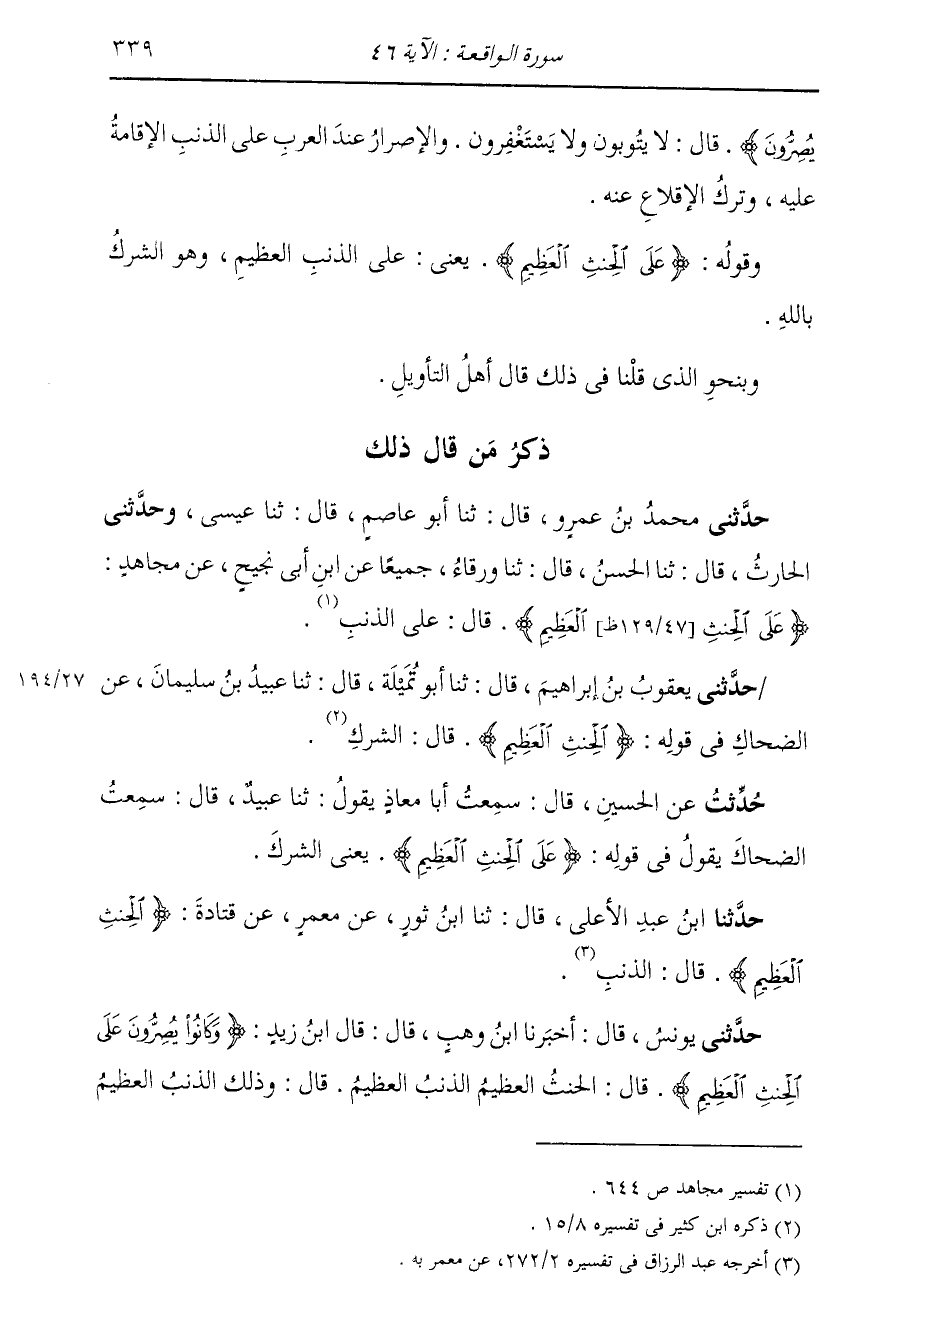 سورة الواقعة : الآية ٤٦ ٣٣٩
يُصِرُّونَ ﴾ . قال : لا يتُوبون ولا يَسْتَغْفِرون . والإصرارُ عندَ العربِ على الذنبِ الإقامةُ
عليه ، وتركُ الإقلاعِ عنه .
وقولُه : ﴿ عَلَى ٱلْحِنثِ ٱلْعَظِيمِ ﴾ . يعنى : على الذنبِ العظيمِ ، وهو الشركُ
باللهِ .
وبنحوِ الذى قلْنا فى ذلك قال أهلُ التأويلِ .
ذكرُ مَن قال ذلك
حدَّثنى محمدُ بنُ عمرٍو ، قال : ثنا أبو عاصمٍ ، قال : ثنا عيسى ، وحدَّثنى
الحارثُ ، قال : ثنا الحسنُ ، قال : ثنا ورقاءُ ، جميعًا عن ابنِ أبى نجيحٍ ، عن مجاهدٍ :
﴿ عَلَى ٱلْحِنثِ [١٢٩/٤٧ظ] ٱلْعَظِيمِ ﴾ . قال : على الذنبِ (١) .
/حدَّثنى يعقوبُ بنُ إبراهيمَ ، قال : ثنا أبو تُمَيْلَةَ ، قال : ثنا عبيدُ بنُ سليمانَ ، عن ١٩٤/٢٧
الضحاكِ فى قولِه : ﴿ ٱلْحِنثِ ٱلْعَظِيمِ ﴾ . قال : الشركِ (٢) .
حُدِّثتُ عن الحسينِ ، قال : سمِعتُ أبا معاذٍ يقولُ : ثنا عبيدٌ ، قال : سمِعتُ
الضحاكَ يقولُ فى قولِه : ﴿ عَلَى ٱلْحِنثِ ٱلْعَظِيمِ ﴾ . يعنى الشركَ .
حدَّثنا ابنُ عبدِ الأعلى ، قال : ثنا ابنُ ثورٍ ، عن معمرٍ ، عن قتادةَ : ﴿ ٱلْحِنثِ
ٱلْعَظِيمِ ﴾ . قال : الذنبِ (٣) .
حدَّثنى يونسُ ، قال : أخبَرنا ابنُ وهبٍ ، قال : قال ابنُ زيدٍ : ﴿ وَكَانُوا۟ يُصِرُّونَ عَلَى
ٱلْحِنثِ ٱلْعَظِيمِ ﴾ . قال : الحنثُ العظيمُ الذنبُ العظيمُ . قال : وذلك الذنبُ العظيمُ
(١) تفسير مجاهد ص ٦٤٤ .
(٢) ذكره ابن كثير فى تفسيره ١٥/٨ .
(٣) أخرجه عبد الرزاق فى تفسيره ٢٧٢/٢، عن معمر به .